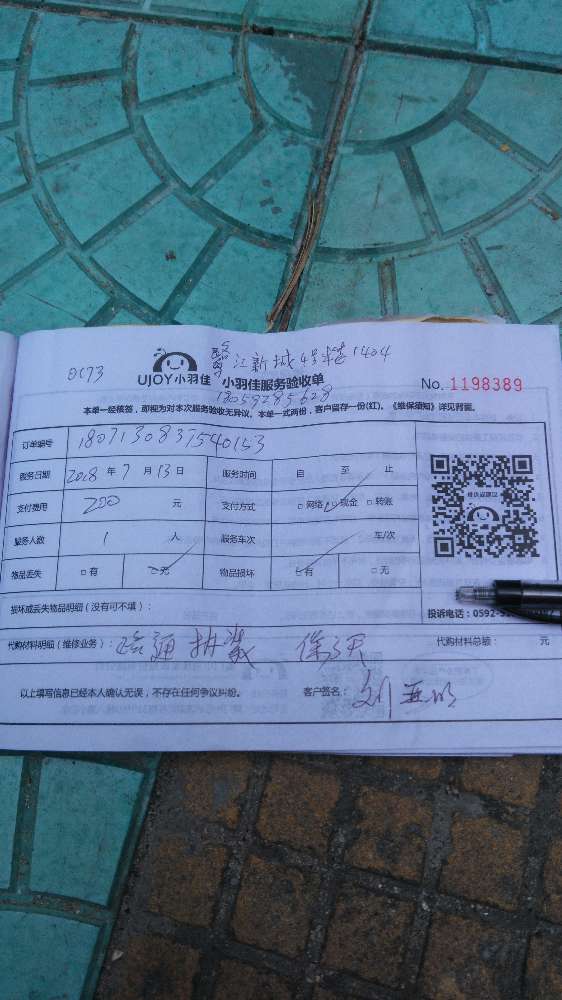 0173
江新城4号楼1404
UJOY小羽佳 小羽佳服务验收单
18059285628
No. 1198389
本单一经核签,即视为对本次服务验收无异议。本单一式两份,客户留存一份(红)。《维保须知》详见背面。
订单编号 1807130837540153
服务日期 2018 年 7 月 13 日 服务时间 自 至 止
支付费用 200 元 支付方式 □网络 □现金 □转账
服务人数 1 人 服务车次 车/次
物品丢失 □有 □无 物品损坏 □有 □无
损坏或丢失物品明细(没有可不填):
投诉电话:0592-5
代购材料明细(维修业务): 疏通 拆装 保 天 代购材料总额: 元
以上填写信息已经本人确认无误,不存在任何争议纠纷。 客户签名: 刘亚明